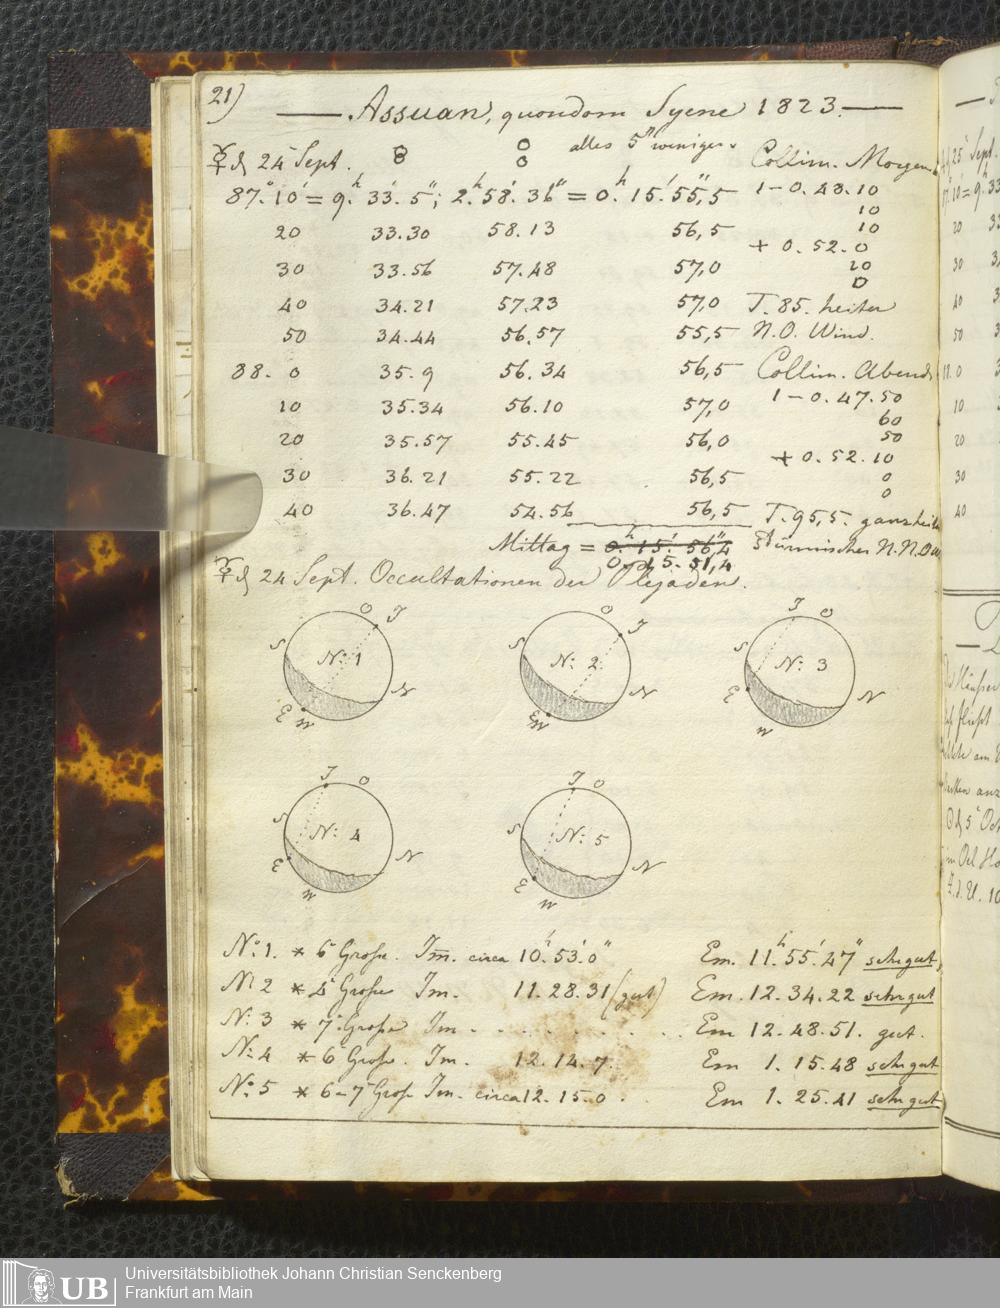 21)
Assuan, quondam Syene 1823.
☿ d 24 Sept. 8 8 alles 5" weniger. Collim. Morgen
87°.10' = 9h.33'.5"; 2h.58'.36" = 0h.15'.55",5 1 - 0.43.10
10
20 33.30 58.13 56,5 10
+ 0.52.0
30 33.56 57.48 57,0 20
0
40 34.21 57.23 57,0 T. 85. heiter
50 34.44 56.57 55,5 N.O. Wind.
88. 0 35.9 56.34 56,5 Collim. Abend
10 35.34 56.10 57,0 1 - 0.47.50
60
20 35.57 55.45 56,0 50
+ 0.52.10
30 36.21 55.22 56,5 0
0
40 36.47 54.56 56,5 T. 95,5. ganz heiter
Mittag = 0h.15'.56",4 Stürmischer N.N.O
0.15.51,4
☿ d 24 Sept. Occultationen der Plejaden.
O J S N: 1 N E W
O J S N: 2 N E W
J O S N: 3 N E W
J O S N: 4 N E W
J O S N: 5 N E W
No: 1. * 6 Große. Im. circa 10h.53'.0" Em. 11h.55'.47" sehr gut,
No 2 * 4 Große Im. 11.28.31 (gut) Em. 12.34.22 sehr gut
No: 3 * 7 Große Im - . . . . . . . . Em 12.48.51. gut.
No: 4 * 6 Große. Im. 12.14.7. Em 1.15.48 sehr gut
No: 5 * 6-7 Große Im. circa 12.15.0 . . Em 1.25.41 sehr gut
25 Sept.
20
30
40
50
10
20
30
40
UB
Universitätsbibliothek Johann Christian Senckenberg
Frankfurt am Main